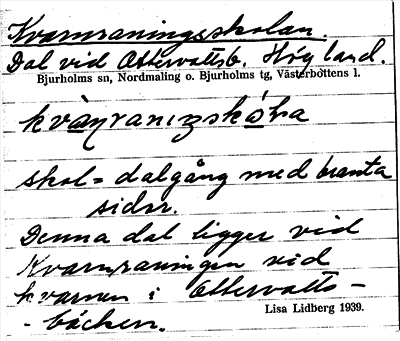 Kvarnraningsskolan.
Dal vid Ottervattsb. Högland.
Bjurholms sn, Nordmaling o. Bjurholms tg, Västerbottens l.
skol = dalgång med branta
sidor.
Denna dal ligger vid
Kvarnraningen vid
kvarnen i Ottervatts-
-bäcken.
Lisa Lidberg 1939.